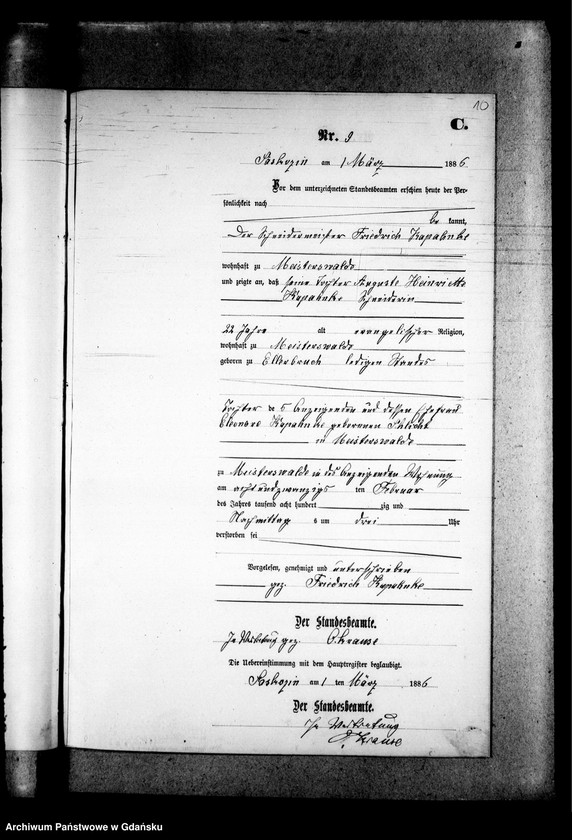 10
C.
Nr. 9
am 1 März 1886
Vor dem unterzeichneten Standesbeamten erschien heute der Per-
sönlichkeit nach
be kannt,
Der Schneidermeister Friedrich Kapahnke
wohnhaft zu Meisterswalde
und zeigte an, daß seine Tochter Auguste Heinriette
Kapahnke Schneiderin
22 Jahre alt evangelischer Religion,
wohnhaft zu Meisterswalde
geboren zu Ellerbruch ledigen Standes
Tochter des Anzeigenden und dessen Ehefrau
Eleonore Kapahnke geborenen
in Meisterswalde
zu Meisterswalde in des Anzeigenden Wohnung
am achtundzwanzigs ten Februar
des Jahres tausend acht hundert zig und
Nachmittag s um drei Uhr
verstorben sei
Vorgelesen, genehmigt und unterschrieben
gez. Friedrich Kapahnke
Der Standesbeamte.
In Vertretung gez. Krause
Die Uebereinstimmung mit dem Hauptregister beglaubigt.
am 1 ten März 1886
Der Standesbeamte.
In Vertretung
Krause
Archiwum Państwowe w Gdańsku